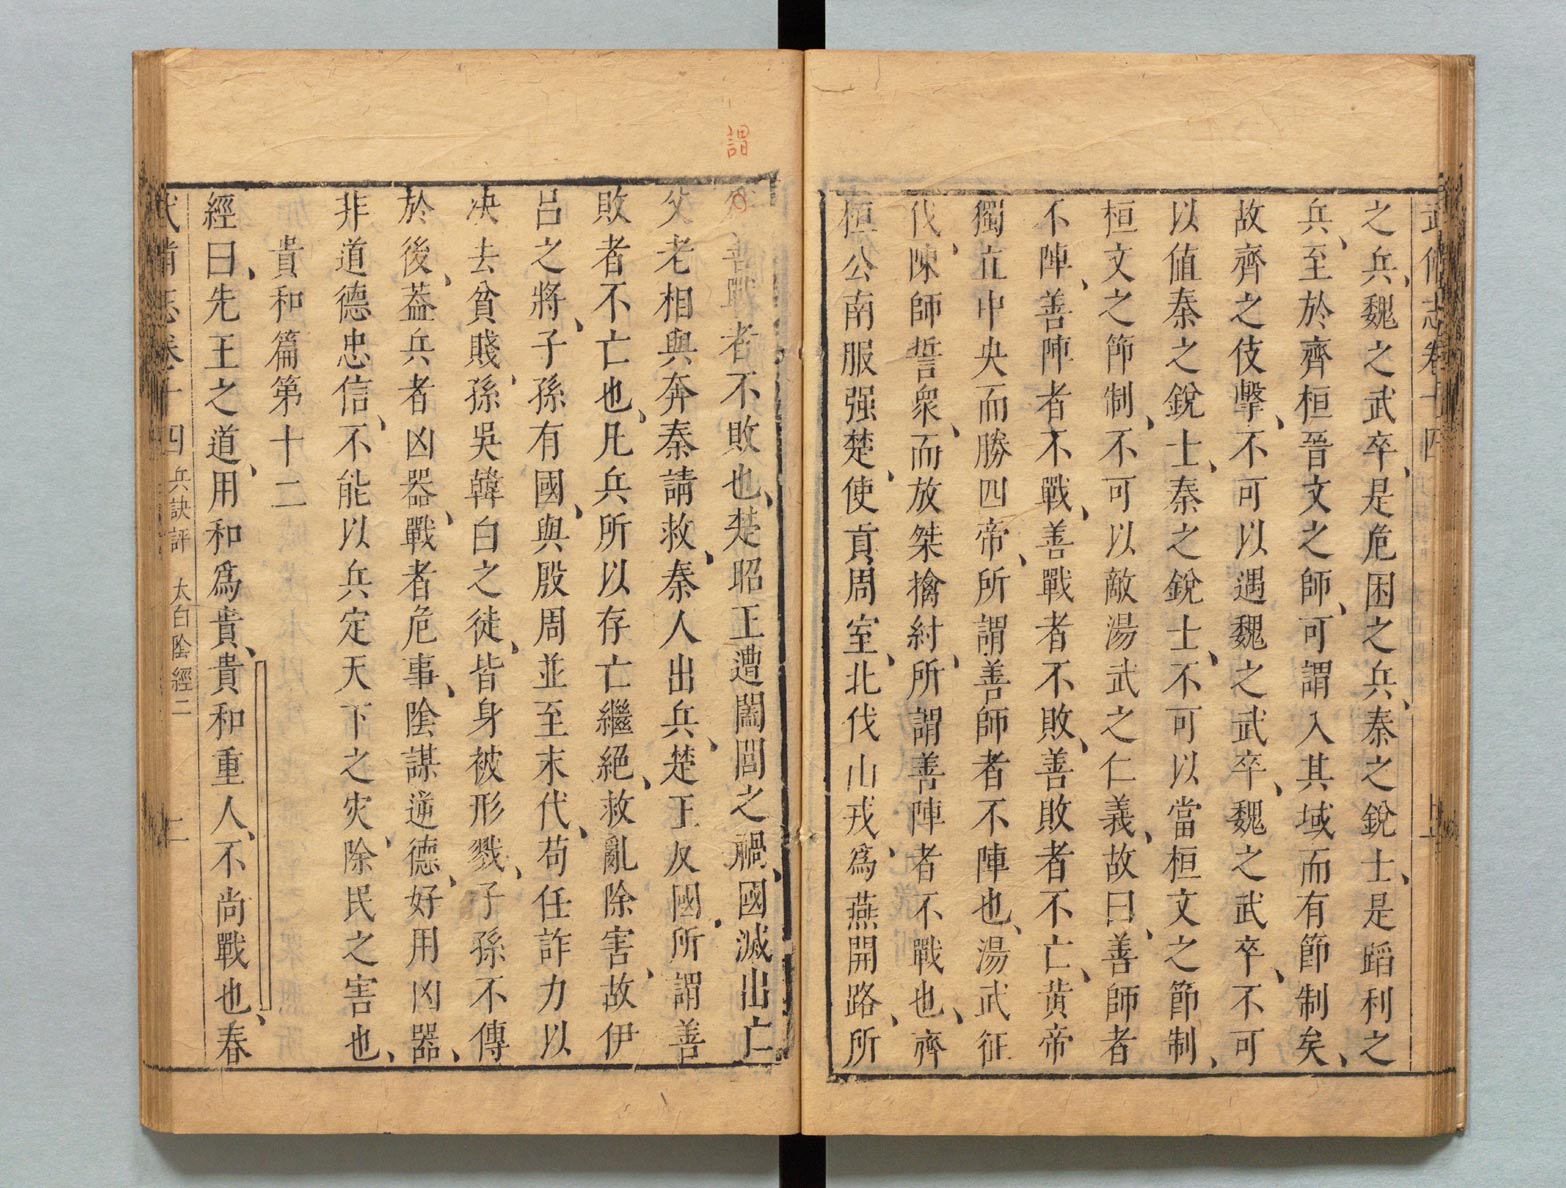 武備志卷十四
之兵、魏之武卒、是危困之兵、秦之銳士、是蹈利之
兵、至於齊桓晉文之師、可謂入其域而有節制矣、
故齊之伎擊、不可以遇魏之武卒、魏之武卒、不可
以値秦之銳士、秦之銳士、不可以當桓文之節制、
桓文之節制、不可以敵湯武之仁義、故曰、善師者
不陣、善陣者不戰、善戰者不敗、善敗者不亡、黄帝
獨立中央而勝四帝、所謂善師者不陣也、湯武征
伐、陳師誓衆、而放桀擒紂、所謂善陣者不戰也、齊
桓公南服强楚、使貢周室、北伐山戎、爲燕開路、所
謂
善戰者不敗也、楚昭王遭闔閭之禍、國滅出亡
父老相與奔秦請救、秦人出兵、楚王反國、所謂善
敗者不亡也、凡兵所以存亡繼絕、救亂除害、故伊
呂之將、子孫有國、與殷周並至末代、苟任詐力以
决去貧賤、孫吳韓白之徒、皆身被形戮、子孫不傳
於後、葢兵者凶器、戰者危事、陰謀逆德、好用凶器、
非道德忠信、不能以兵定天下之灾、除民之害也、
貴和篇第十二
經曰、先王之道、用和爲貴、貴和重人、不尚戰也、春
武備志卷十四 兵訣評 太白陰經二 二